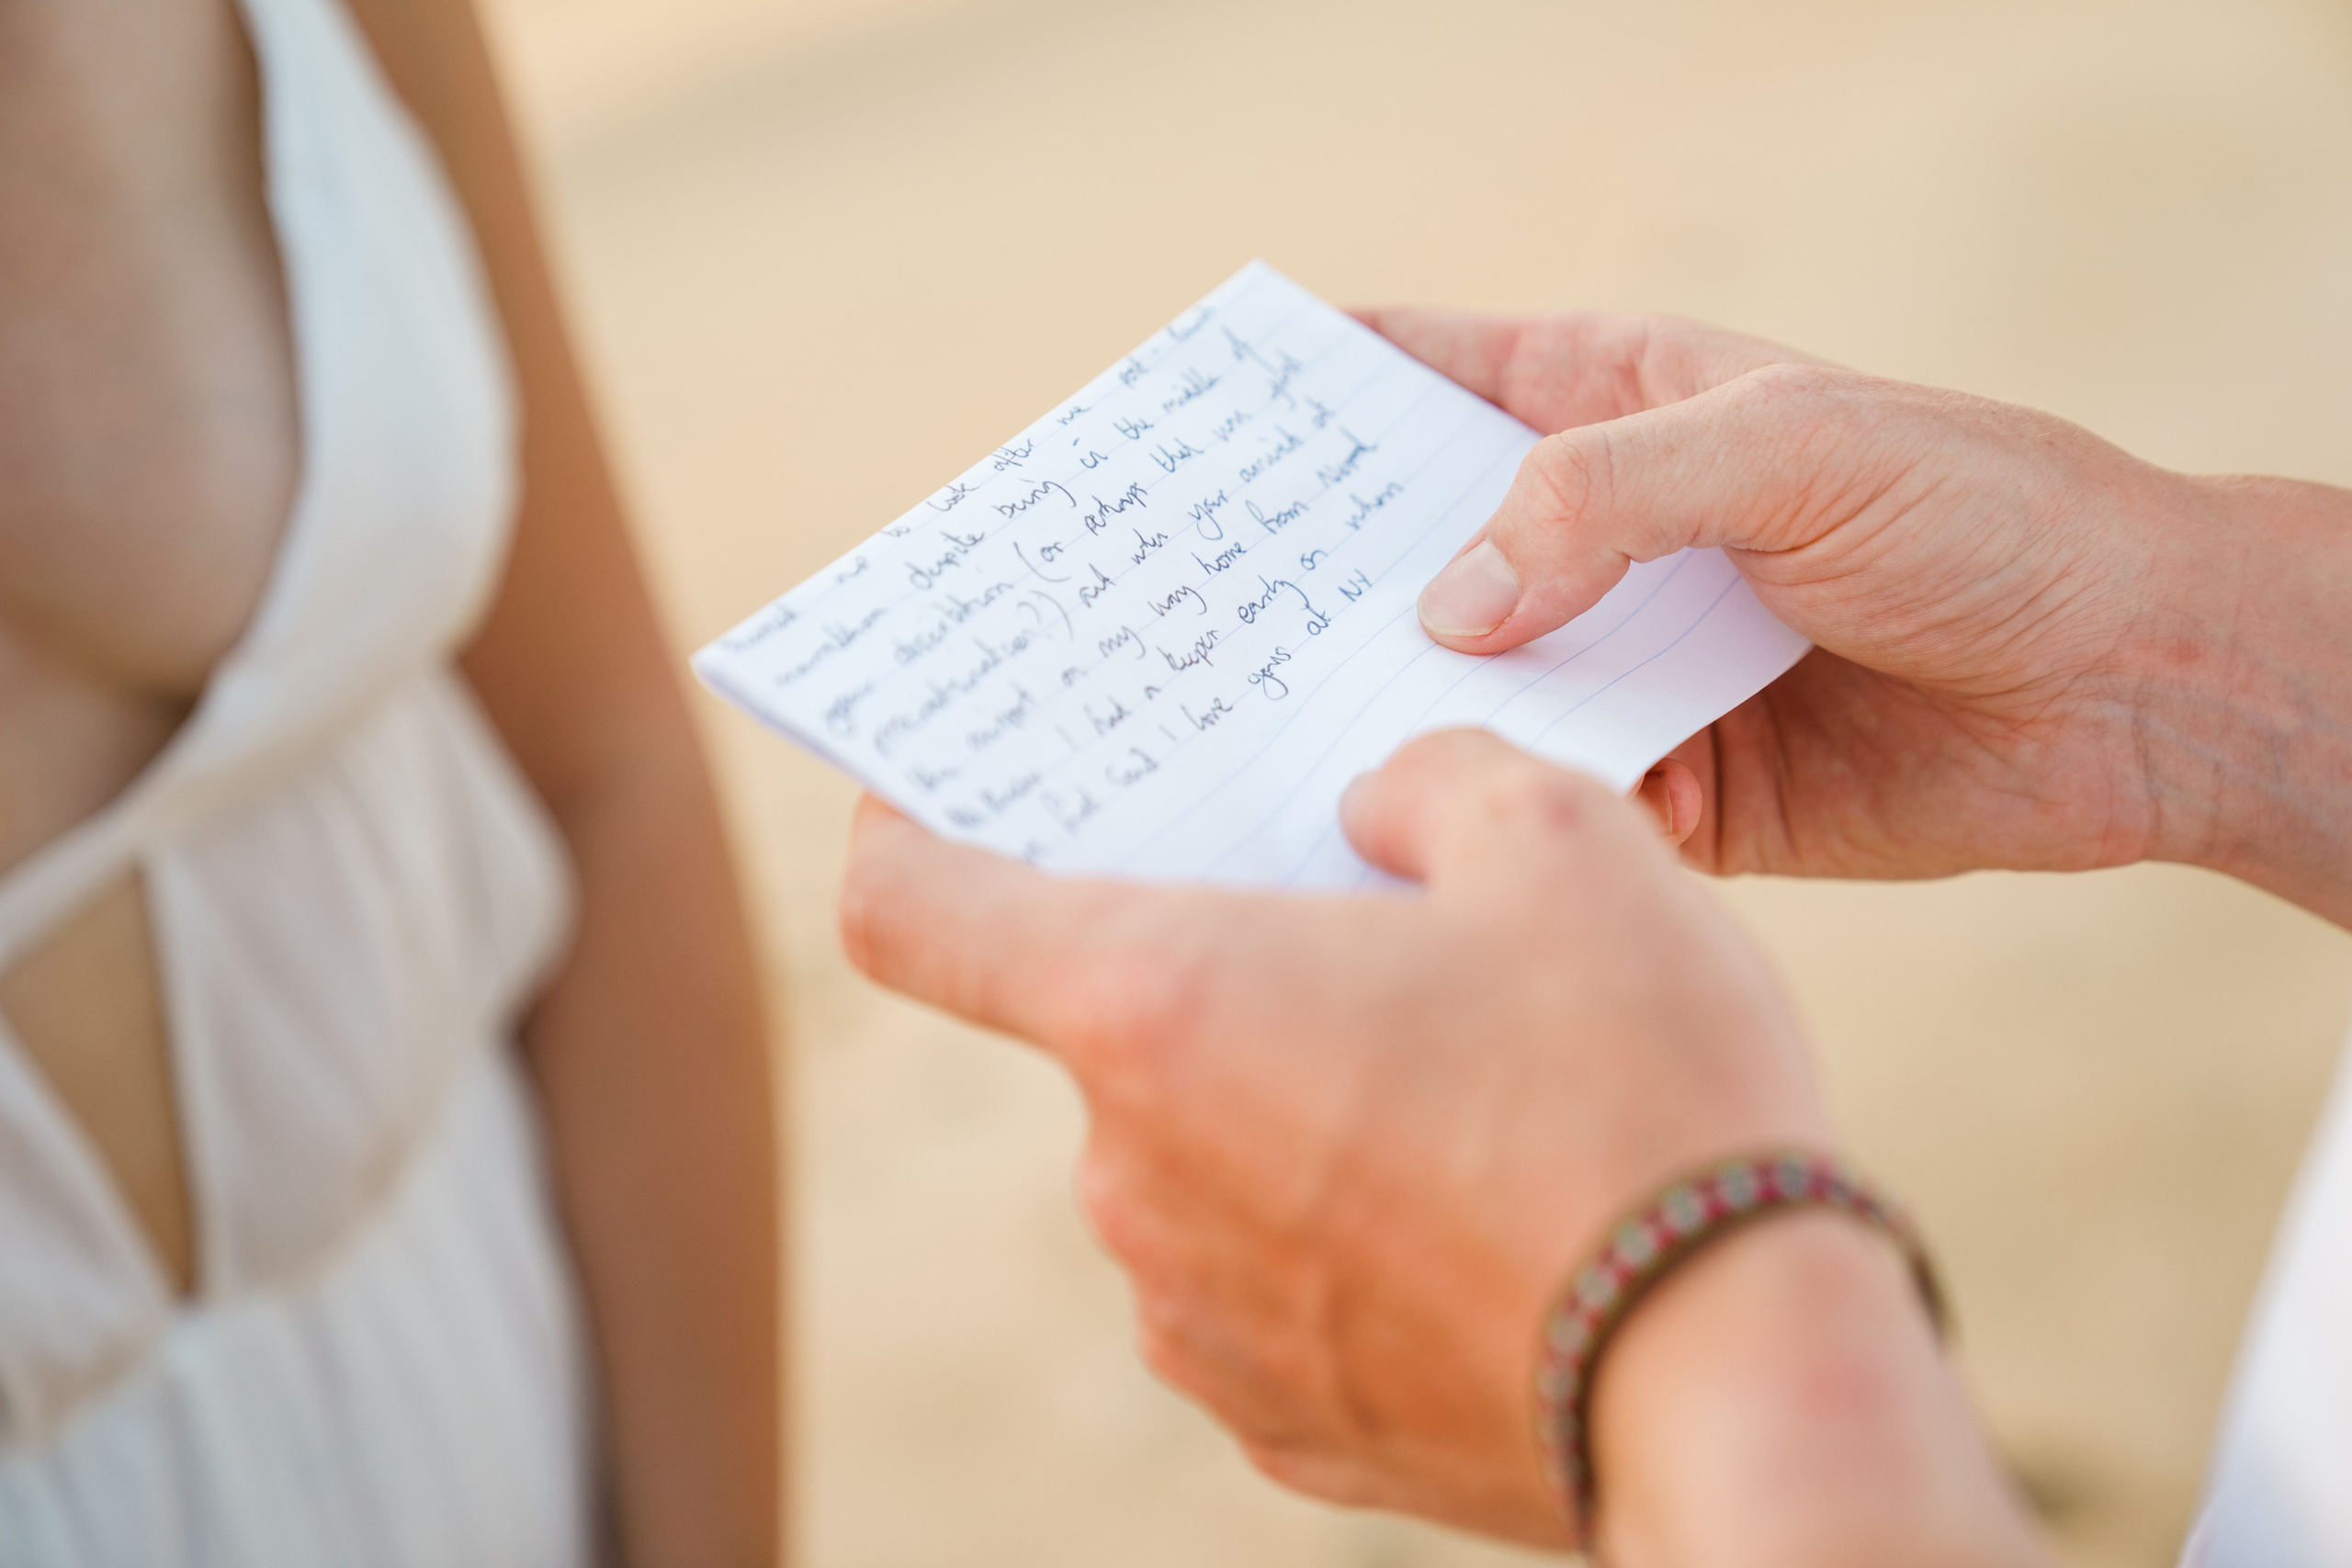 me to look after me post-
marathon despite being in the middle of
your dissertation (or perhaps that was just
procrastination?) but when you arrived at
the airport on my way home from
I had a keeper early on when
we first said I love yous at NY